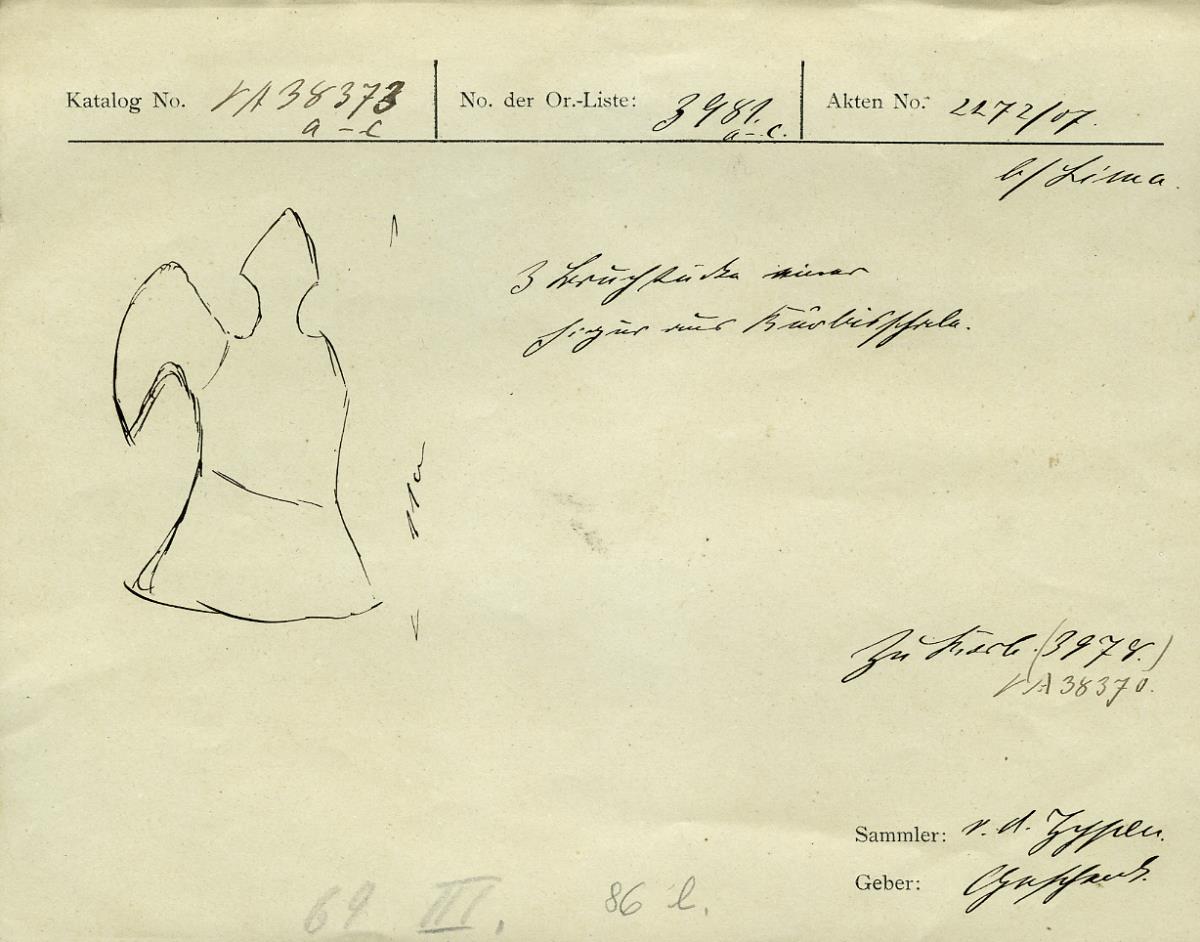 Katalog No. VA 38373 a–c
No. der Or.-Liste: 3981. a–c.
Akten No. 2272/07.
b/ Lima.
3 Bruchstücke einer
Figur aus Kürbisschale.
11 c
Zu Korb. (3978.)
VA 38370.
Sammler: v. d. Zypen.
Geber: Geschenk.
69 III.
86 l.